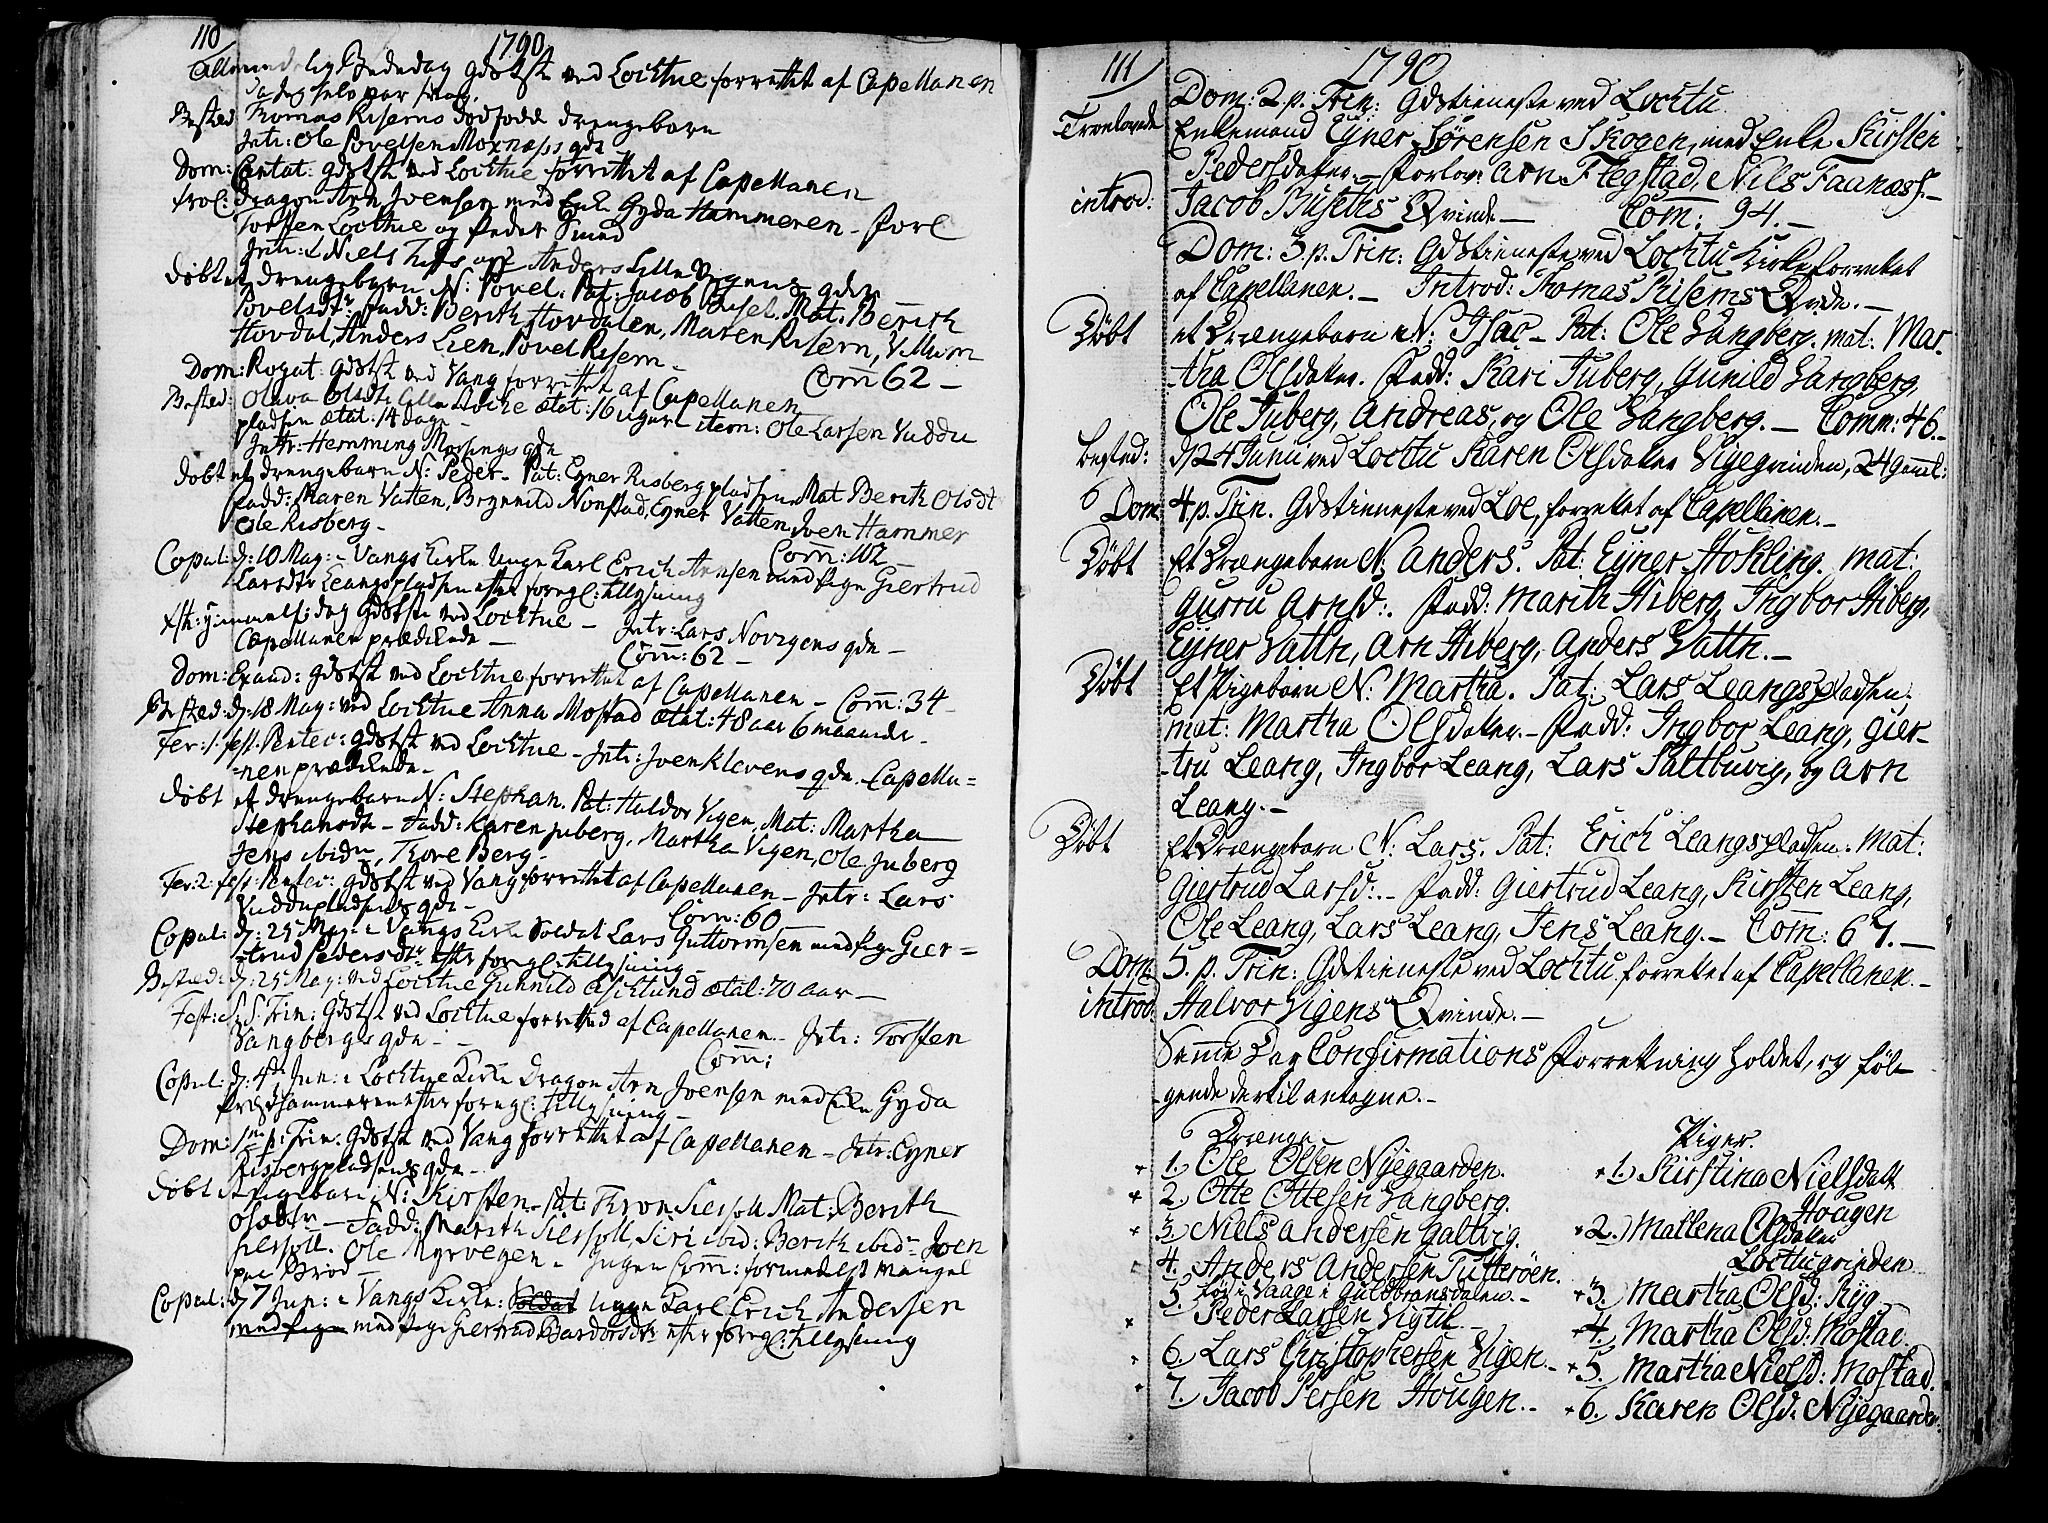 110
1790
Allmindelig Bededag Gdstst ved Lochtue forrettet af Capellanen
da jeg selv var svag.
Bested Thomas Risems dødfødde drengebarn
Intr: Ole Povelsen Moxnæss qde
Dom: Cantat: Gdstst ved Lochtue forrettet af Capellanen
trol: dragon Arn Joensen med Enk: Gyda Hammeren - forl
Torsten Lochtue og Peder
Intr: Niels og Anders Lille Vigens qder
døbt et drengebarn N: Povel. Pat: Jacob Buset. Mat: Berith
Povelsdtr fadd: Berith Hovdalen, Maren Risem, Villum
Hovdal, Anders Lien, Povel Risem -
Dom: Rogat: gdstst ved Vang forrettet af Capellanen Com 62 -
Bested: Olava Olsdtr Lille ætat: 16 uger item: Ole Larsen Vuddu
pladsen ætat: 14 dage -
Intr: Hemming Mossings qde
døbt et drengebarn N: Peder - Pat: Eyner Risberg pladsen Mat Berith Olsdt
fadd: Maren Vatten, Brynild Nonstad, Eyner Vatten, Iver Hammer
Ole Risberg - Com: 102 -
Copul: d: 10 May: i Vangs Kirke unge Karl Erich Arnsen med Pige Giertrud
Larsdtr Leangspladsen efter foregl: tillysning
Xsti himmelf: dag Gdstst ved Lochtue - Intr: Lars Novigens qde -
Capellanen prædikede - Com: 62 -
Dom: Exaud: gdstst ved Lochtue forrettet af Capellanen - Com: 34 -
Bested: d: 18 May: ved Lochtue Anna Mostad ætat: 48 aar 6 maaneder -
Fer: 1. fest: Pentec: gdstst ved Lochtue - Intr: Joen Klevens qde. Capella=
=nen prædikede -
døbt et drengebarn N: Stephan. Pat: Haldor Vigen, Mat: Martha
Stephansdtr - Fadd: Karen Juberg, Martha Vigen, Ole Juberg
Jens ibid:, Thore Berg -
Fer: 2: fest: Pentec: gdstst ved Vang forrettet af Capellanen - Intr: Lars
Vuddupladsens qde - Com: 60
Copul: d: 25 May: i Vangs Kirke Soldat Lars Guttormsen med Pige Gier=
=trud Pedersdtr efter foregl: tillysning -
Bested: d: 25 May: ved Lochtue Gunnild ætat: 70 aar -
Fest: S.S. Trin: Gdstst ved Lochtue forretted af Capellanen - Intr: Torsten
Sangbergs qde - - Com:
Copul: d: 4de Jun: i Lochtue Kirke Dragon Arn Joensen med Enke Gyda
Hammeren efter foregl: tillysning -
Dom: 1me p: Trin: Gdstst ved Vang forrettet af Capellanen - Intr: Eyner
Risbergpladsens qde -
døbt et pigebarn N: Kirsten - Pat: Thron Sersoll Mat: Berith
Olsdtr - Fadd: Marith Siersoll, Siri ibid: Berith ibid: Joen
Siersoll. Ole Myrvegen - Ingen Com: formedelst mangel
paa Brød -
Copul: d: 7 Jun: i Vangs Kirke: Soldat unge Karl Erich Andersen
med Pige med Pige Giertrud Bardorsdtr efter foregl: tillysning
111
1790
Dom: 2. p. Trin: Gdstieneste ved Lochtu
Troelovede Enkemand Ejner Sørensen Skogen, med Enke Kirsten
Pedersdater. - Forlov: Arn Flegstad, Nils Faunæss. -
introd: Jacob Busetes Qvinde - Com: 94. -
Dom: 3. p. Trin: Gdstieneste ved Lochtu Kirke forrettet
af Capellanen. - Introd: Thomas Risems Qvde. -
Døbt et Drængebarn N: Isac - Pat: Ole Sangberg. mat: Mar.
tha Olsdater. Fadd: Kari Juberg, Gunild Sangberg,
Ole Juberg, Andreas, og Ole Sangberg. - Comm: 46. -
bested: d/ 24 Junii ved Lochtu Karen Olsdater Vigegrinden, 24 gaml:
Dom 4. p. Trin. Gdstieneste ved Loe, forrettet af Capellanen. -
Døbt Et Drængebarn N: Anders. Pat: Ejner Hokling. mat:
Gurru Arnsd:. Fadd: Marith Hiberg, Ingbor Hiberg,
Ejner Vattn, Arn Hiberg, Anders Vattn. -
Døbt Et Pigebarn N: Martha. Pat: Lars Leangspladsen.
mat: Martha Olsdater. - Fadd: Ingbor Leang, Gier-
-tru Leang, Ingbor Leang, Lars Saltbuvig, og Arn
Leang. -
Døbt Et Drængebarn N: Lars. Pat: Erich Leangspladsen. mat:
Giertrud Larsd:. - Fadd: Giertrud Leang, Kirsten Leang,
Ole Leang, Lars Leang, Jens Leang. - Com: 67. -
Dom: 5. p. Trin: Gdstieneste ved Lochtu forrettet af Capellanen. -
introd: Halvor Vigens Qvinde. -
Samme Dag Confirmations Forretning holdet, og føl-
-gende dertil antagne. -
Drænge
1. Ole Olsen Nijegaarden.
2. Otte Ottesen Sangberg.
3. Niels Andersen Galtvig.
4. Anders Andersen Tutterøen.
fød i Vaage i Guldbransdalen. -
5. Peder Larsen Vigtil. -
6. Lars Christophersen Vigen. -
7. Jacob Persen Hougen. -
Piger
1. Kirstina Nielsdatt
Hougen
2. Mallena Olsdater
Lochtugrinden
3. Martha Olsd: Ryg
4. Martha Olsd: Mostad
5. Martha Nielsd: Mostad.
6. Karen Olsd: Nijegaarden.